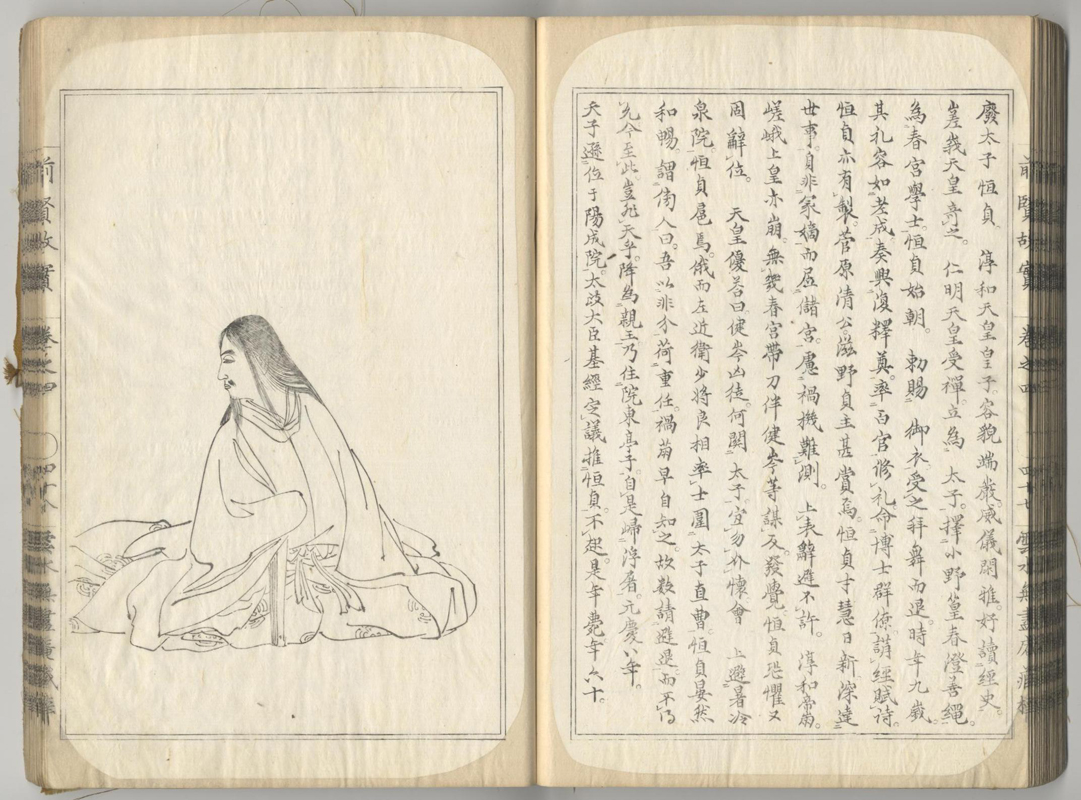 廢太子恒貞 淳和天皇皇子。容貌端嚴。威儀閑雅。好讀經史。
嵯峩天皇奇之。仁明天皇受禪立為 太子。擇小野篁春澄善繩。
為春宮學士。恒貞始朝。 勅賜 御衣受之拜舞而退。時年九歲。
其礼容如老成。奏輿復釋奠。率百官修礼。命博士群僚講經賦詩。
恒貞亦有製。菅原清公。滋野貞主甚賞焉。恒貞才慧日新。深達
世事。自非冢嫡而居儲宮。慮禍機難測。上表辭遜不許。 淳和帝崩。
嵯峨上皇亦崩。無幾春宮帶刀伴健岑等謀反。發覺。恒貞恐懼又
固辭位。 天皇優荅曰。健岑凶徒。何関 太子。宜勿介懷。會 上避暑冷
泉院。恒貞扈焉。俄而左近衛少將良相率士圍 太子直曹。恒貞晏然
和暢。謂傍人曰。吾以非分荷重任。禍萌早自知之。故数請遜退。而不得
允。今至此。豈非天乎。降為親王。乃住院東亭子。自是歸浮屠。元慶八年。
天子遜位于陽成院。太政大臣基經定議推恒貞。不起。是年薨。年六十。
前賢故實 卷之四 雲水無盡庵藏
前賢故實 卷之四